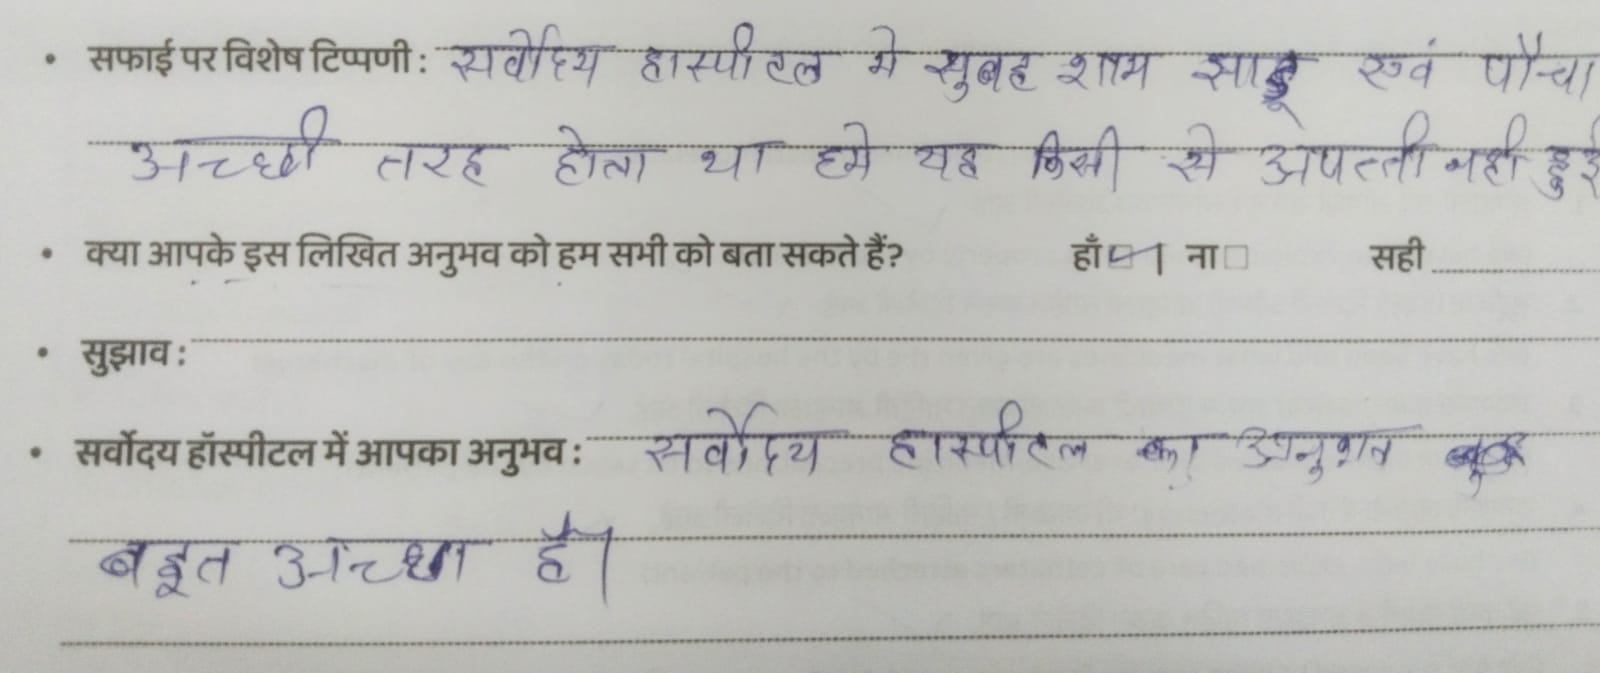 • सफाई पर विशेष टिप्पणी : सर्वोदिय हास्पीटल मे सुबह शाम झाडू एवं पौचा
अच्छी तरह होता था हमे यह किसी से अपत्ती नही हुई
• क्या आपके इस लिखित अनुभव को हम सभी को बता सकते हैं? हाँ ☑ ना □ सही
• सुझाव :
• सर्वोदय हॉस्पीटल में आपका अनुभव : सर्वोदिय हास्पीटल का अनुभव
बहुत अच्छा है।